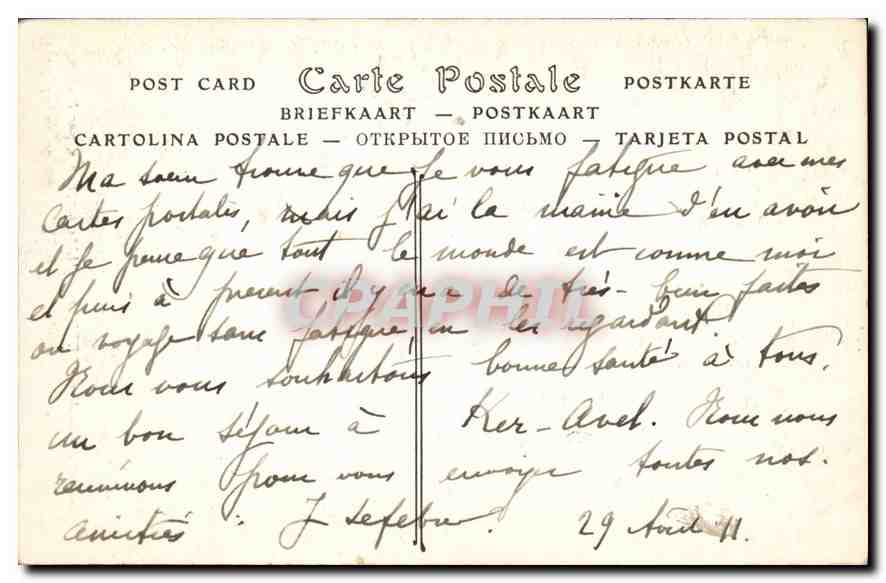 POST CARD Carte Postale POSTKARTE
BRIEFKAART — POSTKAART
CARTOLINA POSTALE — ОТКРЫТОЕ ПИСЬМО — TARJETA POSTAL
Ma soeur trouve que je vous fatigue avec mes
cartes postales, mais j'ai la manie d'en avoir
et je pense que tout le monde est comme moi
et puis à présent il y en a de très-bien faites
on voyage sans fatigue, en les regardant.
Nous vous souhaitons bonne santé à tous,
un bon séjour à Ker-Avel. Nous nous
réunissons pour vous envoyer toutes nos
amitiés. J Lefebvre. 29 Août 11.
CPAPHIL